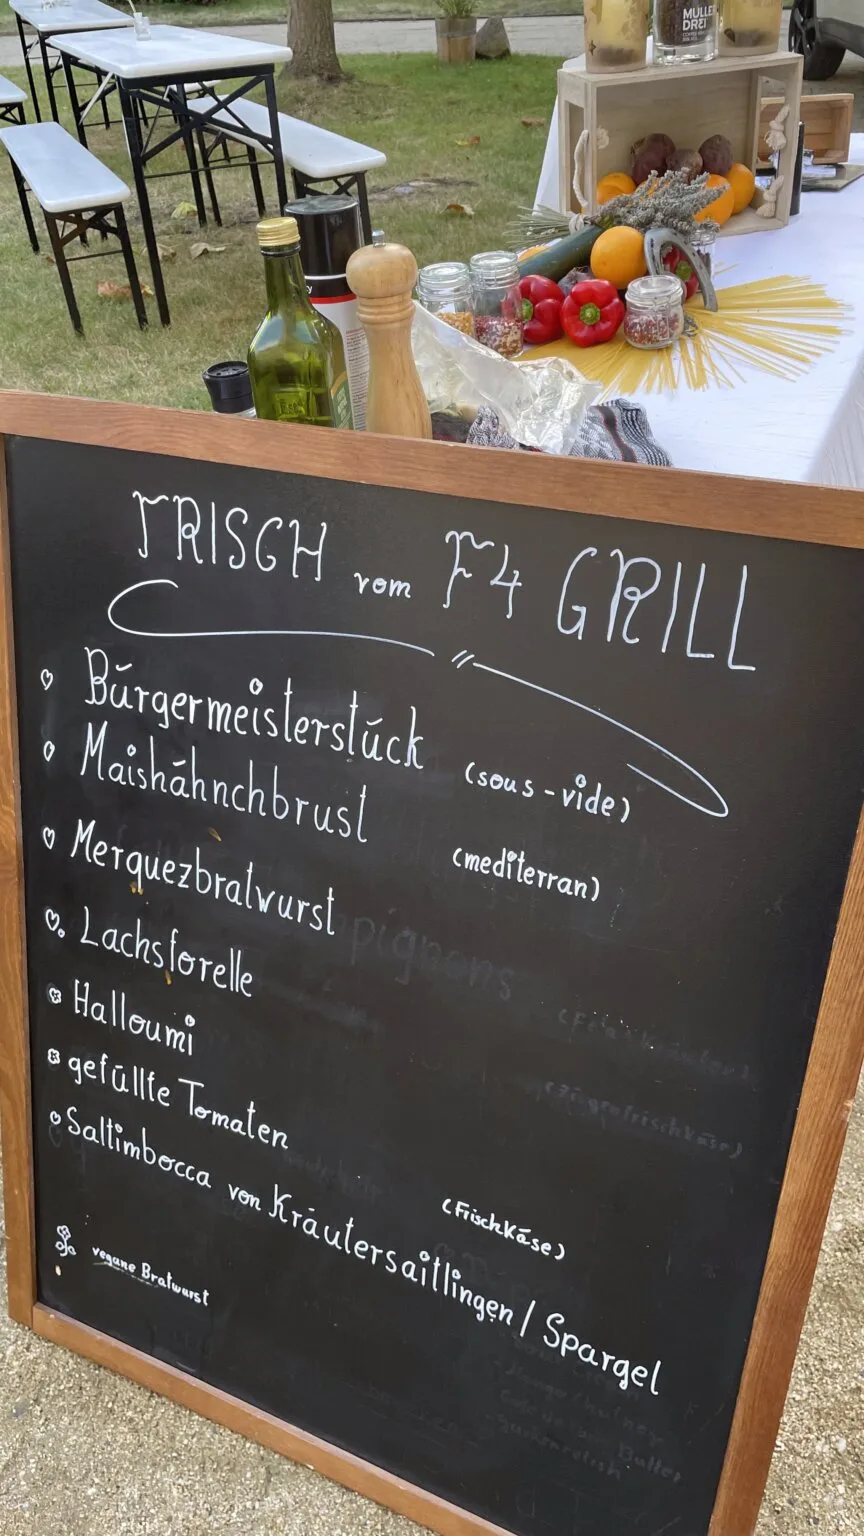 MULLE
DREI
FRISCH vom F4 GRILL
Bürgermeisterstück (sous-vide)
Maishähnchbrust (mediterran)
Merquezbratwurst
Lachsforelle
Halloumi
gefüllte Tomaten (Frischkäse)
Saltimbocca von Kräutersaitlingen / Spargel
vegane Bratwurst